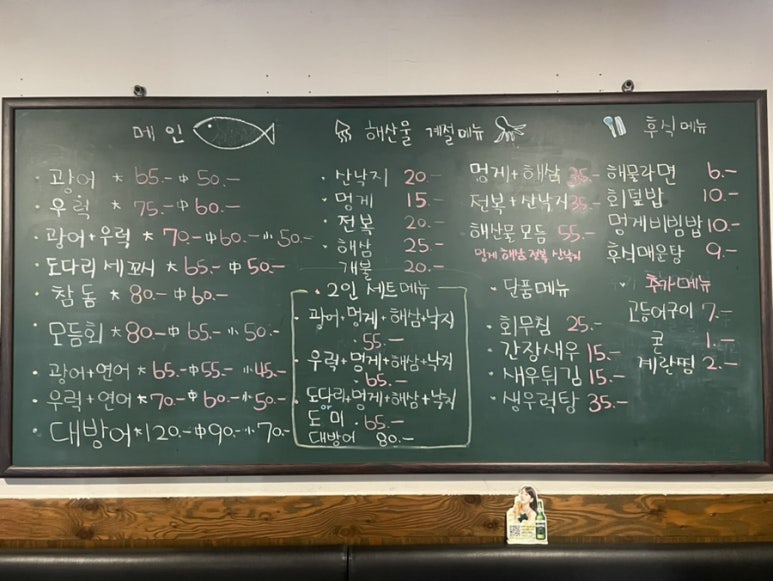 메인
광어 大 65.- 中 50.-
우럭 大 75.- 中 60.-
광어+우럭 大 70.- 中 60.- 小 50.-
도다리 세꼬시 大 65.- 中 50.-
참돔 大 80.- 中 60.-
모듬회 大 80.- 中 65.- 小 50.-
광어+연어 大 65.- 中 55.- 小 45.-
우럭+연어 大 70.- 中 60.- 小 50.-
대방어 大 120.- 中 90.- 小 70.-
해산물 계절메뉴
산낙지 20.-
멍게 15.-
전복 20.-
해삼 25.-
개불 20.-
멍게+해삼 35.-
전복+산낙지 35.-
해산물 모듬 55.-
멍게 해삼 전복 산낙지
2인 세트메뉴
광어+멍게+해삼+낙지
55.-
우럭+멍게+해삼+낙지
65.-
도다리+멍게+해삼+낙지
or
도미 65.-
대방어 80.-
단품메뉴
회무침 25.-
간장새우 15.-
새우튀김 15.-
생우럭탕 35.-
후식메뉴
해물라면 6.-
회덮밥 10.-
멍게비빔밥 10.-
후식매운탕 9.-
추가메뉴
고등어구이 7.-
콘 1.-
계란찜 2.-